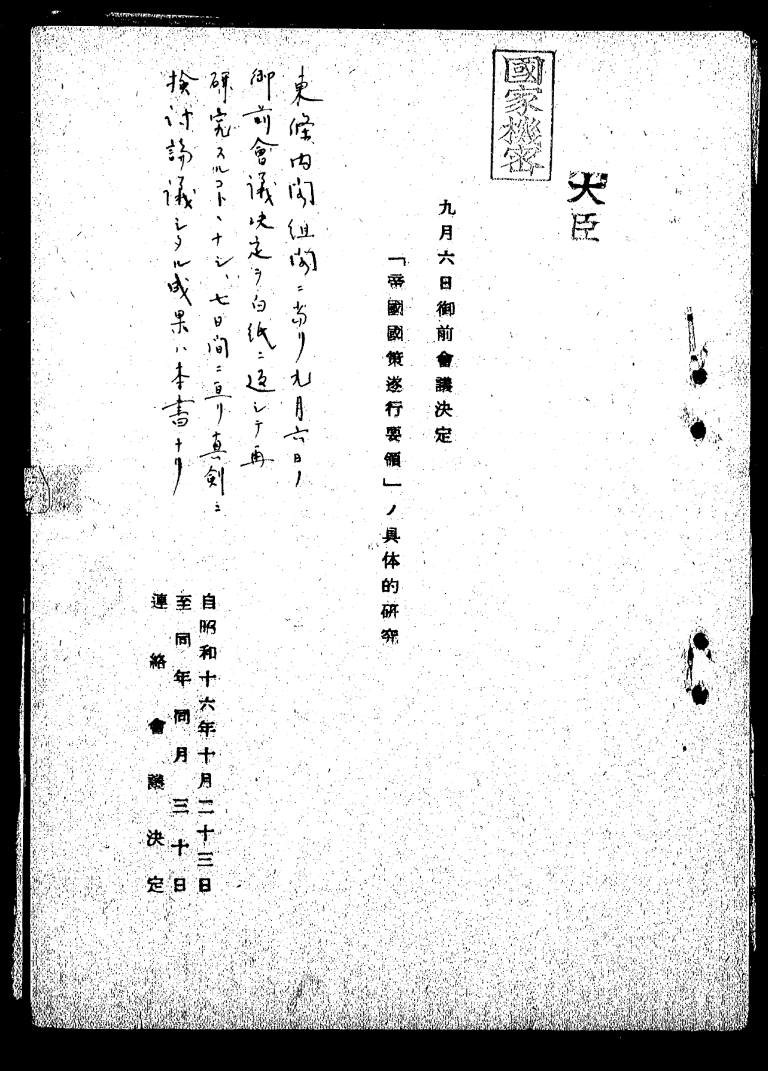 大臣
國家機密
九月六日御前會議決定
「帝國國策遂行要領」ノ具体的研究
東條内閣組閣ニ當リ九月六日ノ
御前會議決定ヲ白紙ニ返シテ再
研究スルコトヽナシ、七日間ニ亘リ真剣ニ
檢討論議シタル成果ハ本書ナリ
自昭和十六年十月二十三日
至同年同月三十日
連絡會議決定